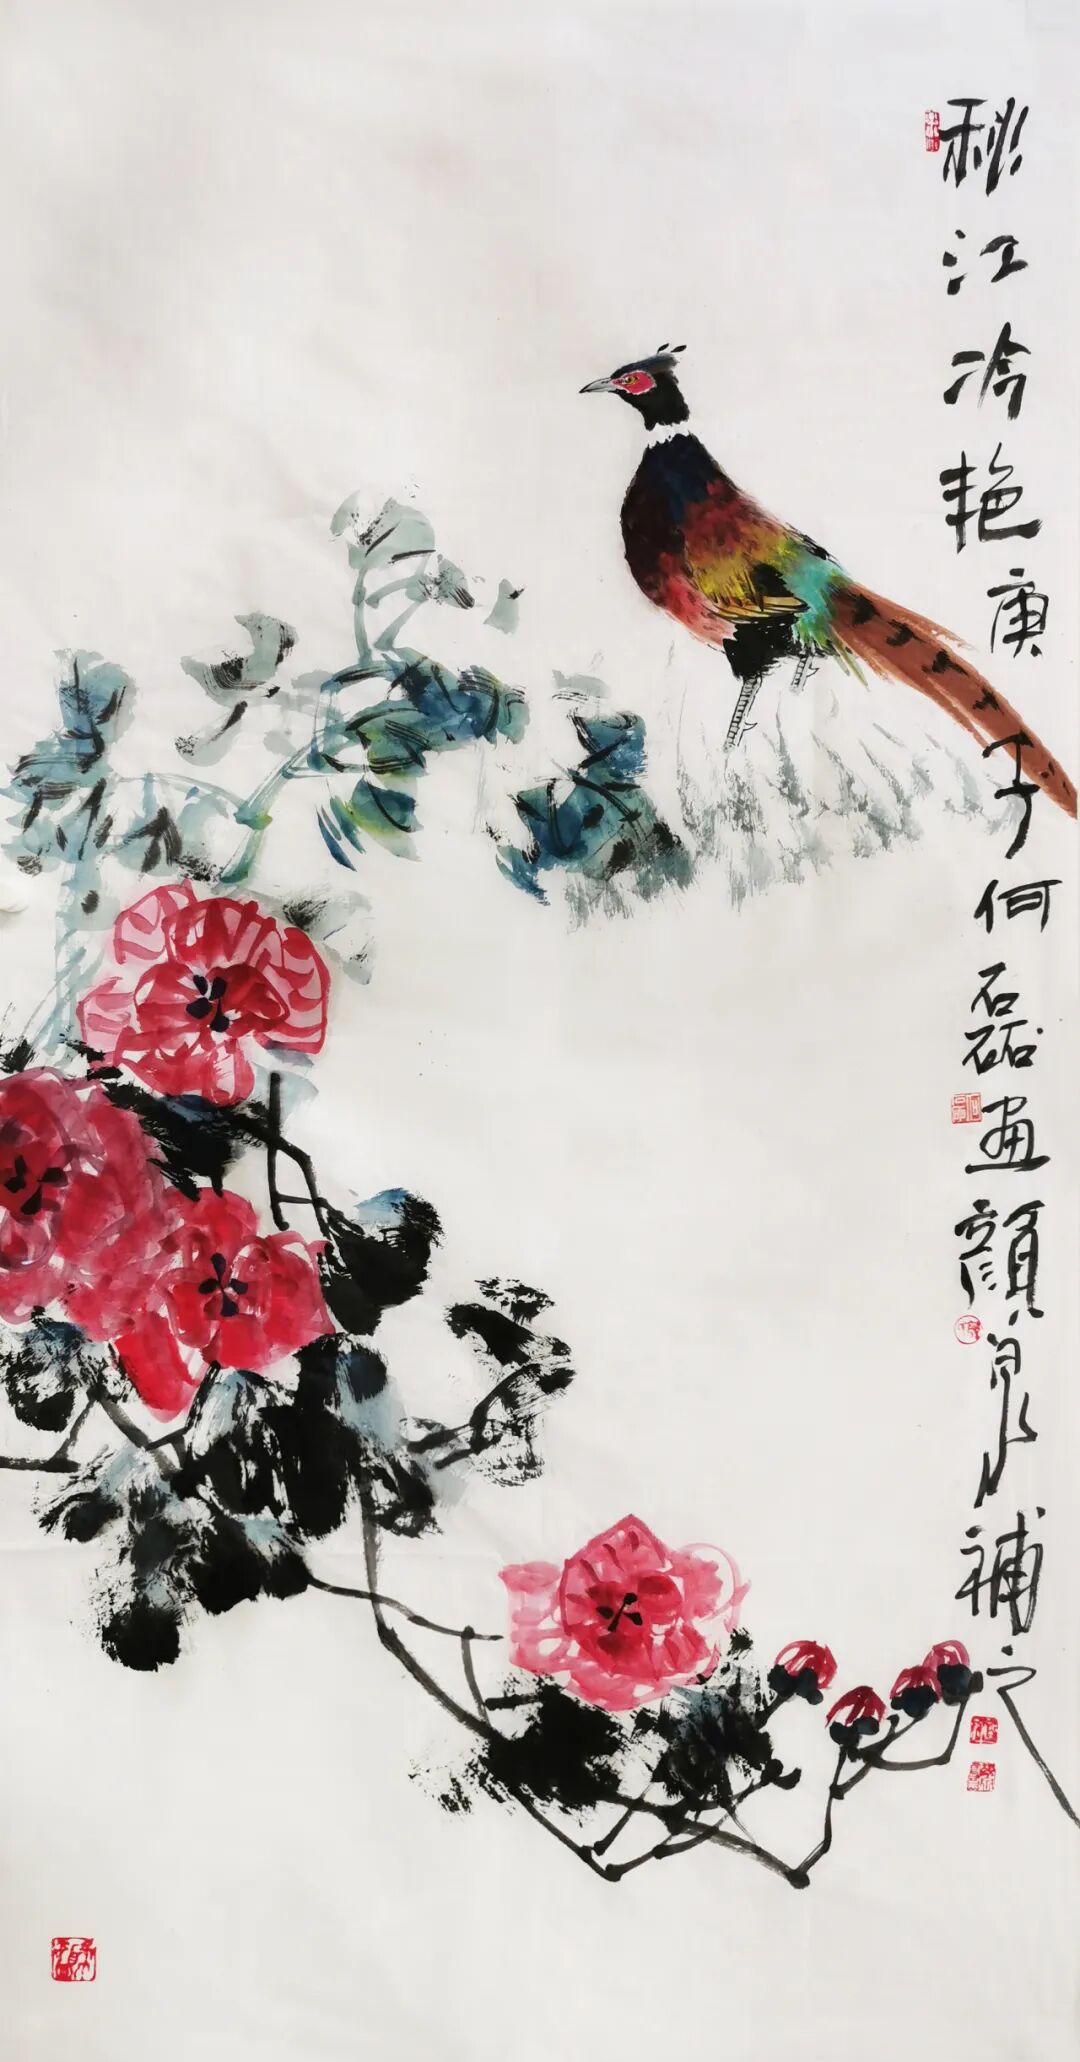 秋江冷艳庚子何磊画颜泉补之